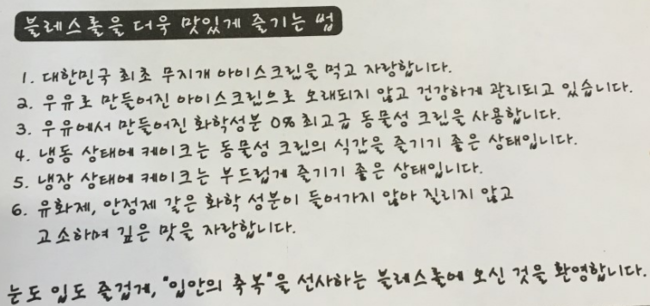 블레스롤을 더욱 맛있게 즐기는 법
1. 대한민국 최초 무지개 아이스크림을 먹고 자랑합니다.
2. 우유로 만들어진 아이스크림으로 오래되지 않고 건강하게 관리되고 있습니다.
3. 우유에서 만들어진 화학성분 0% 최고급 동물성 크림을 사용합니다.
4. 냉동 상태에 케이크는 동물성 크림의 식감을 즐기기 좋은 상태입니다.
5. 냉장 상태에 케이크는 부드럽게 즐기기 좋은 상태입니다.
6. 유화제, 안정제 같은 화학 성분이 들어가지 않아 질리지 않고
고소하며 깊은 맛을 자랑합니다.
눈도 입도 즐겁게, "입안의 축복"을 선사하는 블레스롤에 오신 것을 환영합니다.